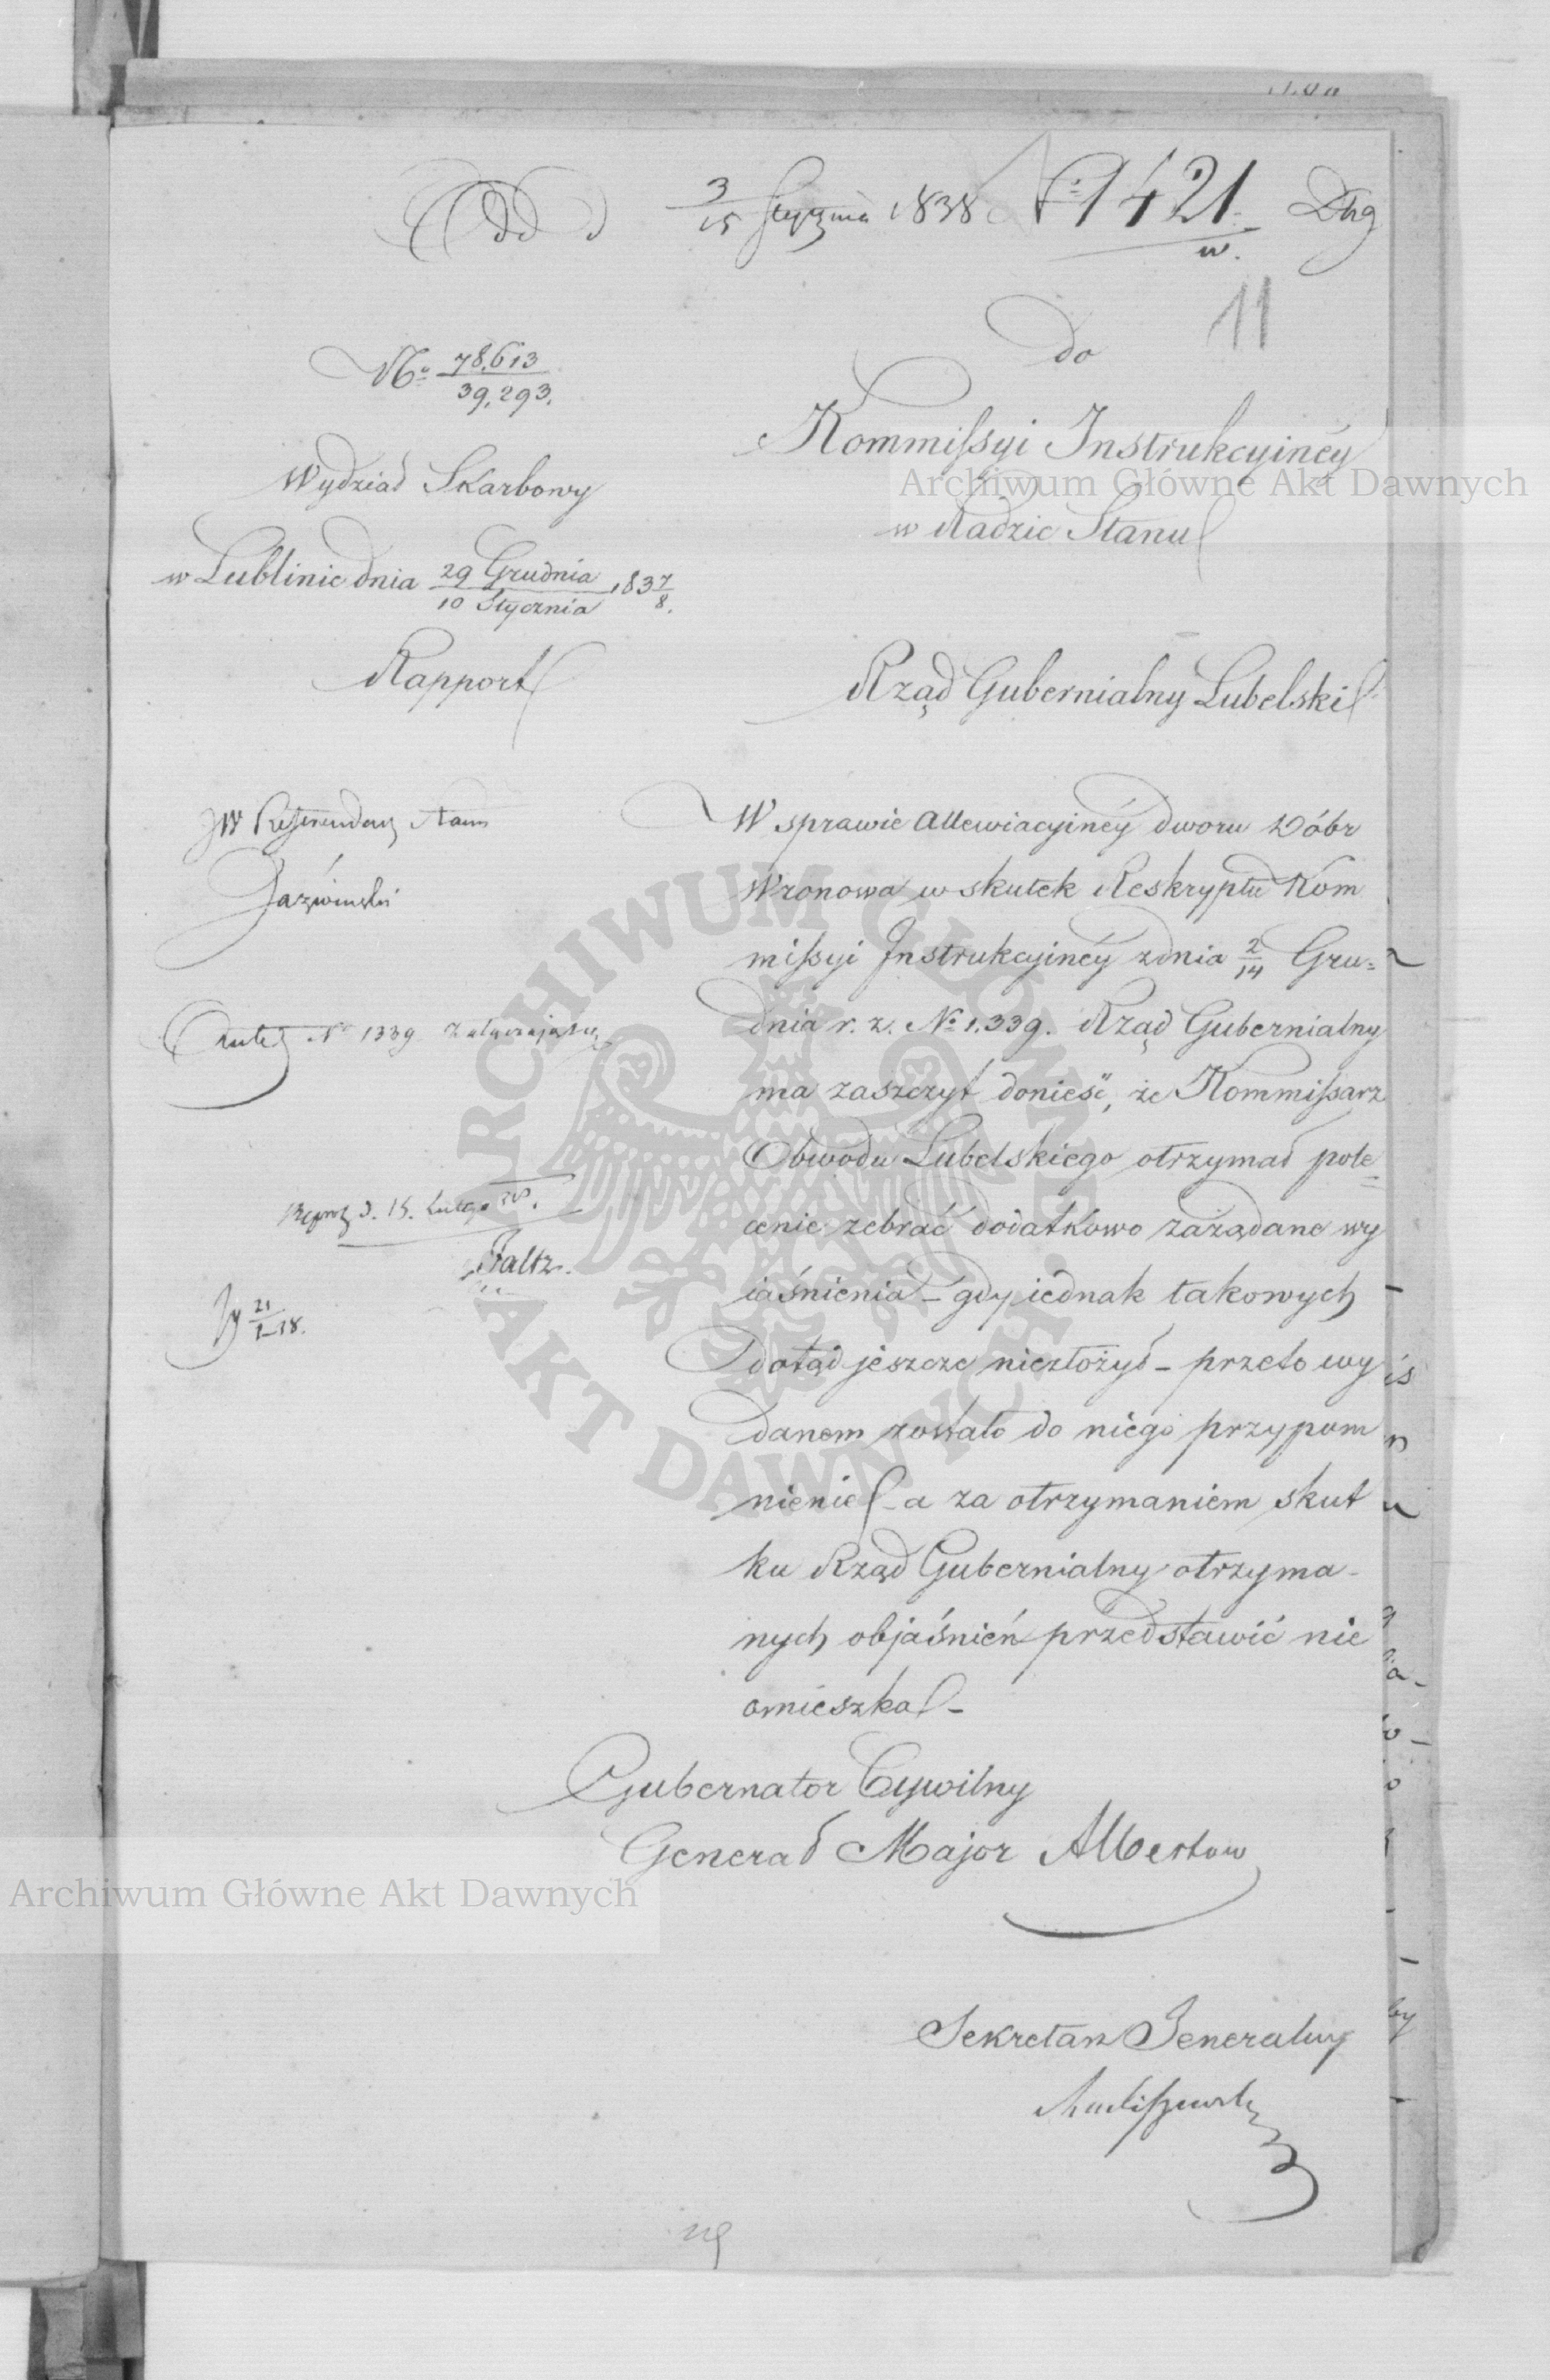 3/15 Stycznia 1838 N: 1421. w.
11
do
No 78,613/39,293.
Kommissyi Instrukcyinéy
Wydział Skarbowy
w Radzie Stanu
w Lublinie dnia 29 Grudnia/10 Stycznia 1837/8.
Rapport
Rząd Gubernialny Lubelski
JW Referendarz Stanu
W sprawie allewiacyinéy dworu Dóbr
Wronowa w skutek Reskryptu Kom
missyi Instrukcyinéy z dnia 2/14 Gru=
No 1339 załączając
dnia r. z. No 1,339. Rząd Gubernialny
ma zaszczyt donieść, że Kommissarz
Obwodu Lubelskiego otrzymał pole=
3. 15. Lutego
cenie zebrać dodatkowo zażądane wy
Faltz.
iaśnienia – gdy iednak takowych
21/1 38.
dotąd jeszcze niezłożył – przeto wy
danem zostało do niego przypom
nienie – a za otrzymaniem skut
ku Rząd Gubernialny otrzyma-
nych objaśnień przedstawić nie
omieszka –
Gubernator Cywilny
Generał Major Albertow
Sekretarz Jeneralny
Archiwum Główne Akt Dawnych
ARCHIWUM GŁÓWNE AKT DAWNYCH
Archiwum Główne Akt Dawnych